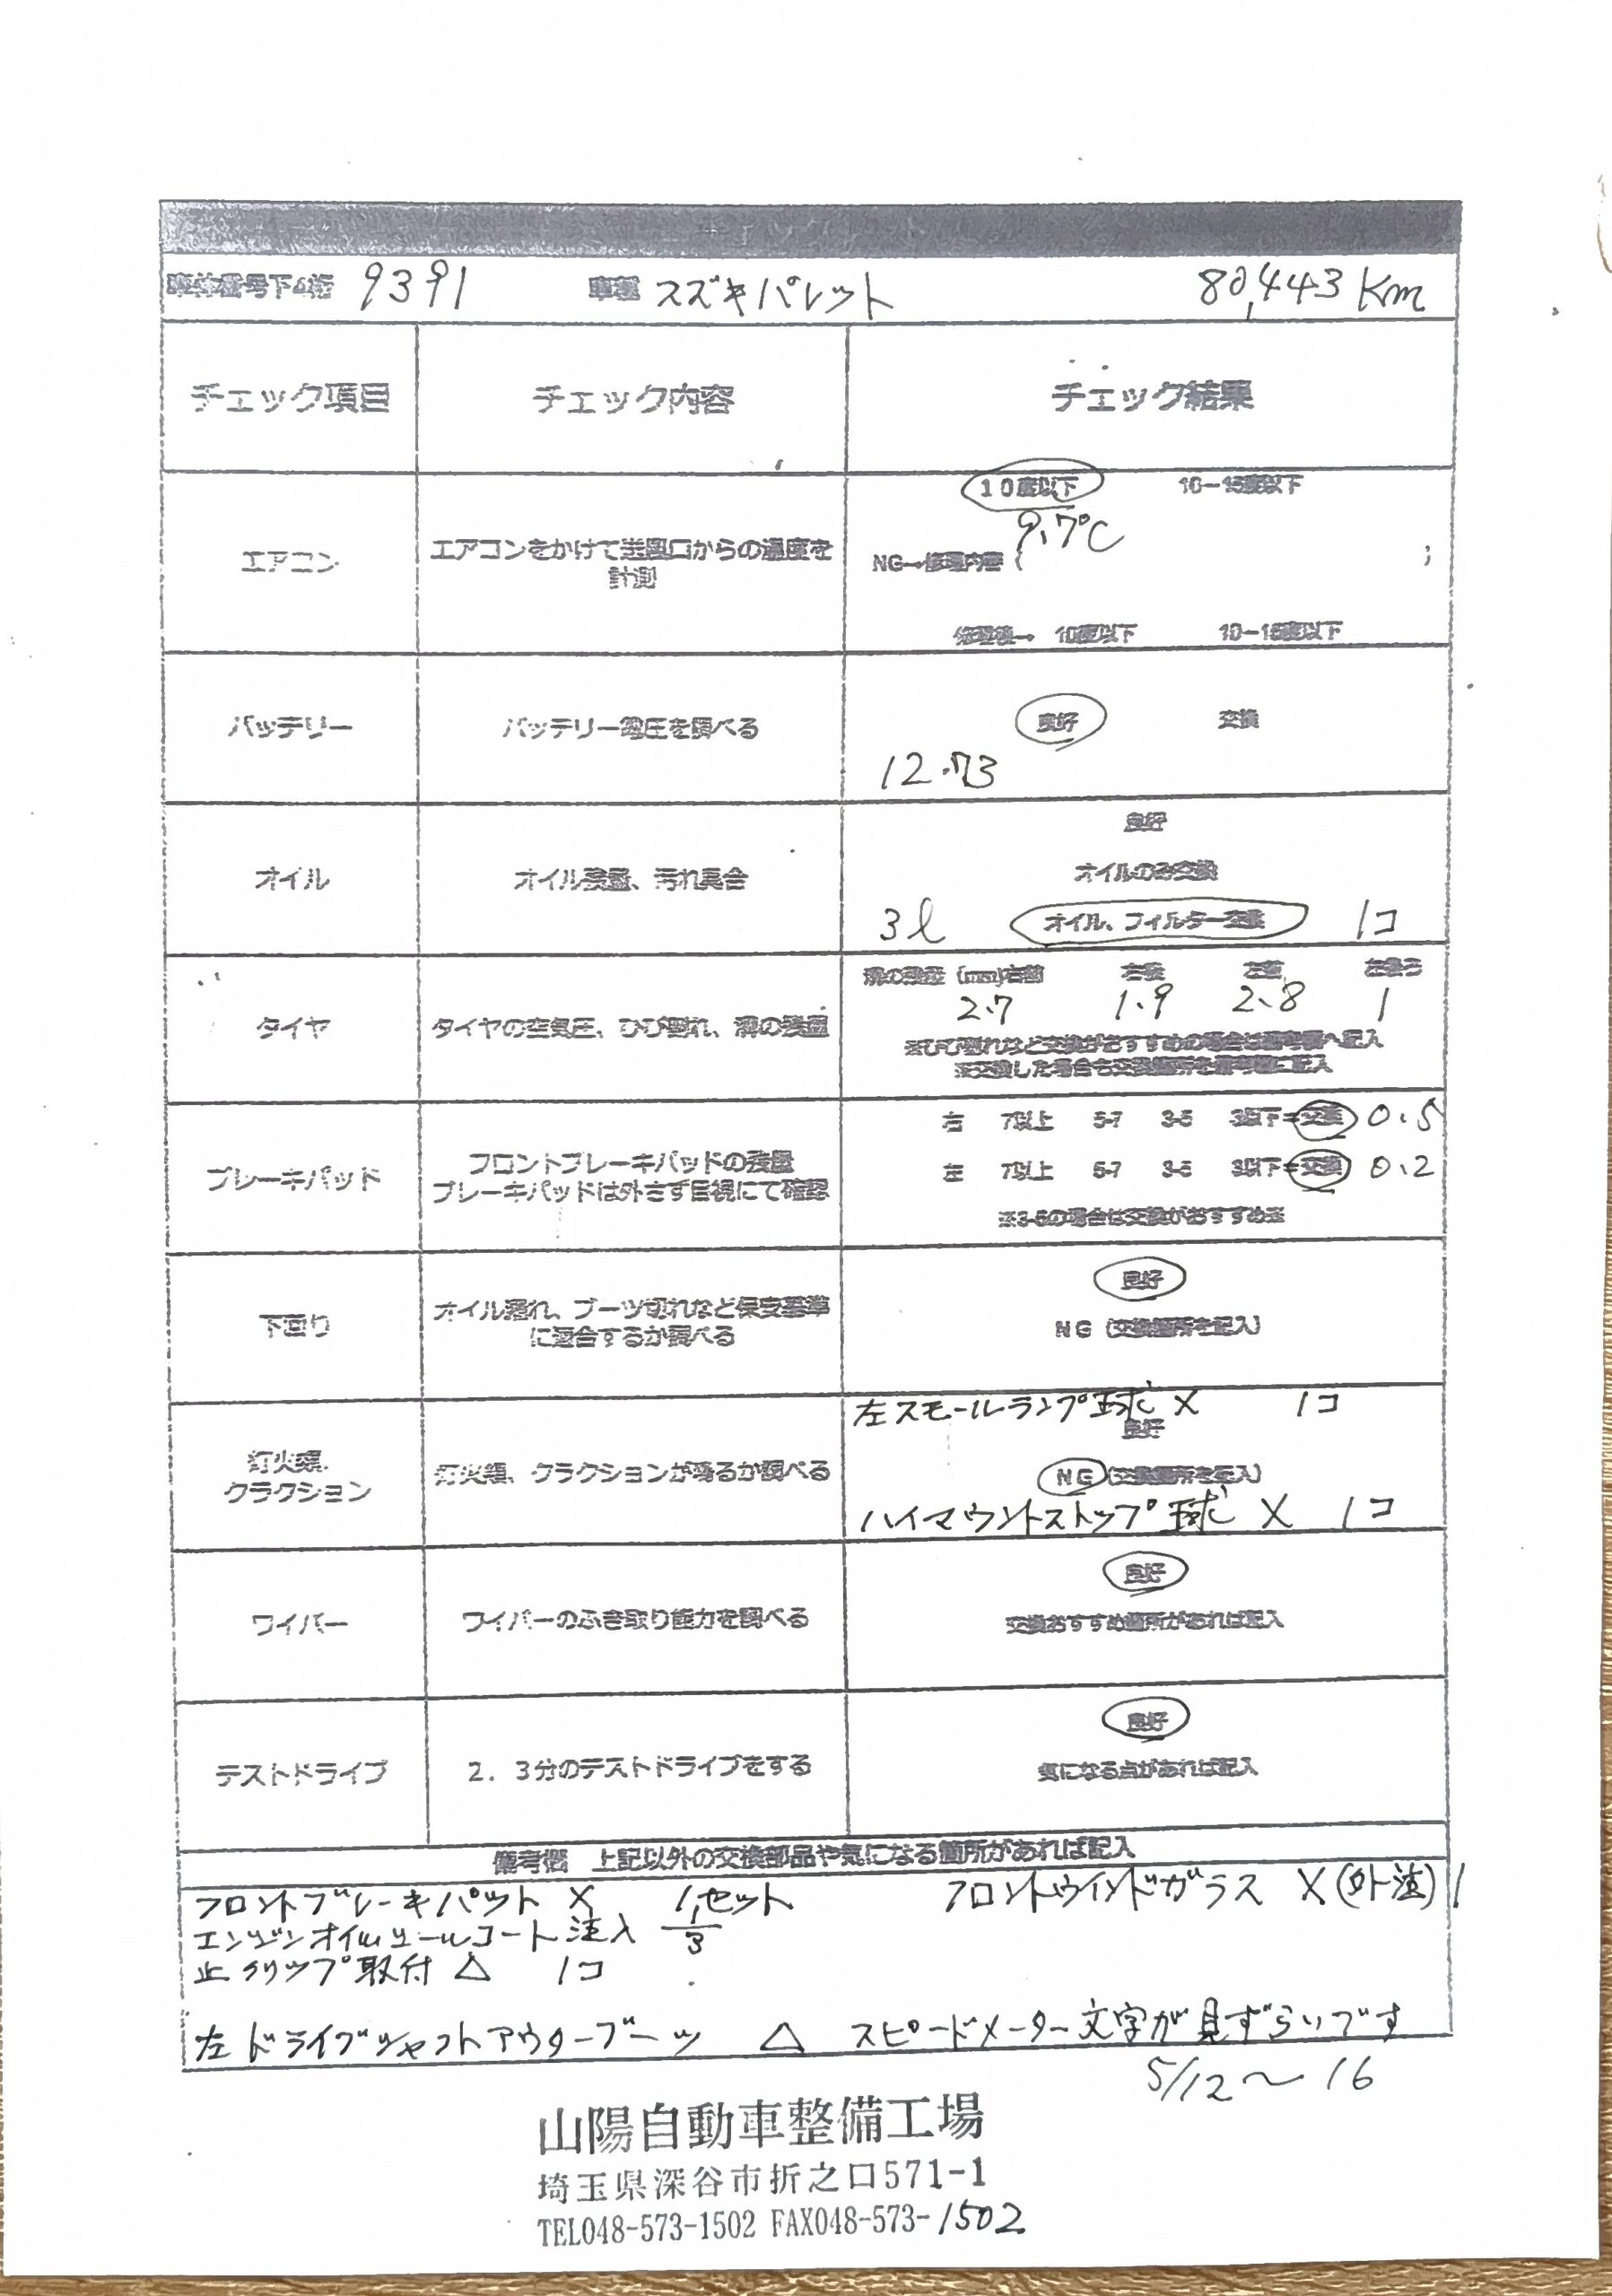 車体番号下4桁 9391 車種 スズキパレット 80,443 Km
チェック項目 チェック内容 チェック結果
エアコン エアコンをかけて送風口からの温度を計測
10度以下 10-15度以下
9.7℃
NG→修理内容 ( )
修理後→ 10度以下 10-15度以下
バッテリー バッテリー電圧を調べる 良好 交換
12.73
オイル オイル残量、汚れ具合
良好
オイルのみ交換
3ℓ オイル、フィルター交換 1コ
タイヤ タイヤの空気圧、ひび割れ、溝の残量
溝の残量 (mm)右前 右後 左前 左後ろ
2.7 1.9 2.8 1
※ひび割れなど交換がおすすめの場合は備考欄へ記入
※交換した場合も交換箇所を備考欄に記入
ブレーキパッド フロントブレーキパッドの残量
ブレーキパッドは外さず目視にて確認
右 7以上 5-7 3-5 3以下=交換 0.5
左 7以上 5-7 3-5 3以下=交換 0.2
※3-5の場合は交換がおすすめ※
下回り オイル漏れ、ブーツ切れなど保安基準
に適合するか調べる
良好
NG (交換箇所を記入)
灯火類、
クラクション
灯火類、クラクションが鳴るか調べる
左スモールランプ球 X 1コ
良好
NG (交換箇所を記入)
ハイマウントストップ球 X 1コ
ワイパー ワイパーのふき取り能力を調べる
良好
交換おすすめ箇所があれば記入
テストドライブ 2.3分のテストドライブをする
良好
気になる点があれば記入
備考欄 上記以外の交換部品や気になる箇所があれば記入
フロントブレーキパット X 1セット フロントウインドガラス X (外注) 1
エンジンオイルシールコート注入 1/3
止クリップ取付 △ 1コ
左ドライブシャフトアウターブーツ △ スピードメーター文字が見ずらいです
5/12〜16
山陽自動車整備工場
埼玉県深谷市折之口571-1
TEL048-573-1502 FAX048-573-1502